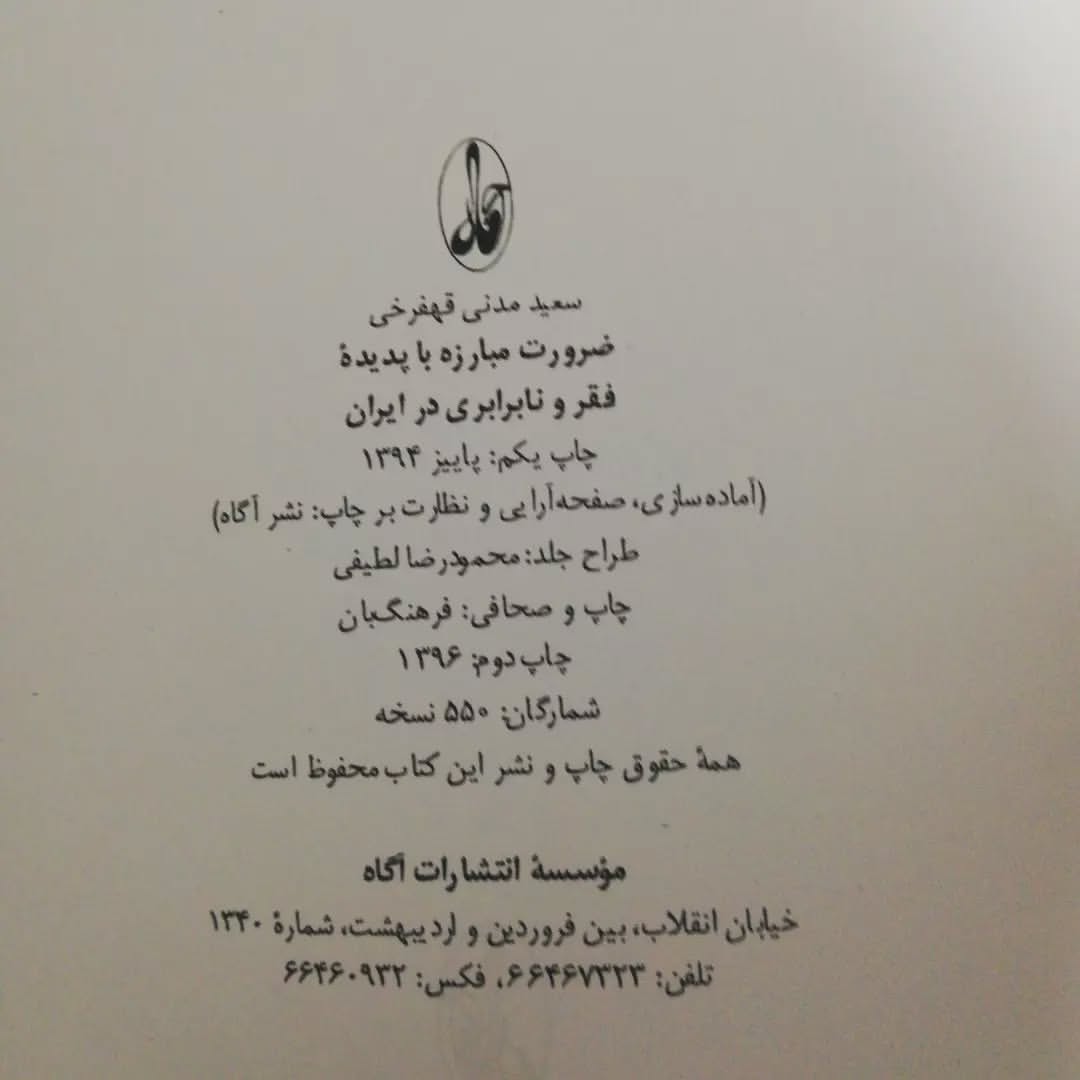 آگاه
سعید مدنی قهفرخی
ضرورت مبارزه با پدیدهٔ
فقر و نابرابری در ایران
چاپ یکم: پاییز ۱۳۹۴
(آماده‌سازی، صفحه‌آرایی و نظارت بر چاپ: نشر آگاه)
طراح جلد: محمودرضا لطیفی
چاپ و صحافی: فرهنگ‌بان
چاپ دوم: ۱۳۹۶
شمارگان: ۵۵۰ نسخه
همهٔ حقوق چاپ و نشر این کتاب محفوظ است
مؤسسهٔ انتشارات آگاه
خیابان انقلاب، بین فروردین و اردیبهشت، شمارهٔ ۱۳۴۰
تلفن: ۶۶۴۶۷۳۲۳، فکس: ۶۶۴۶۰۹۳۲